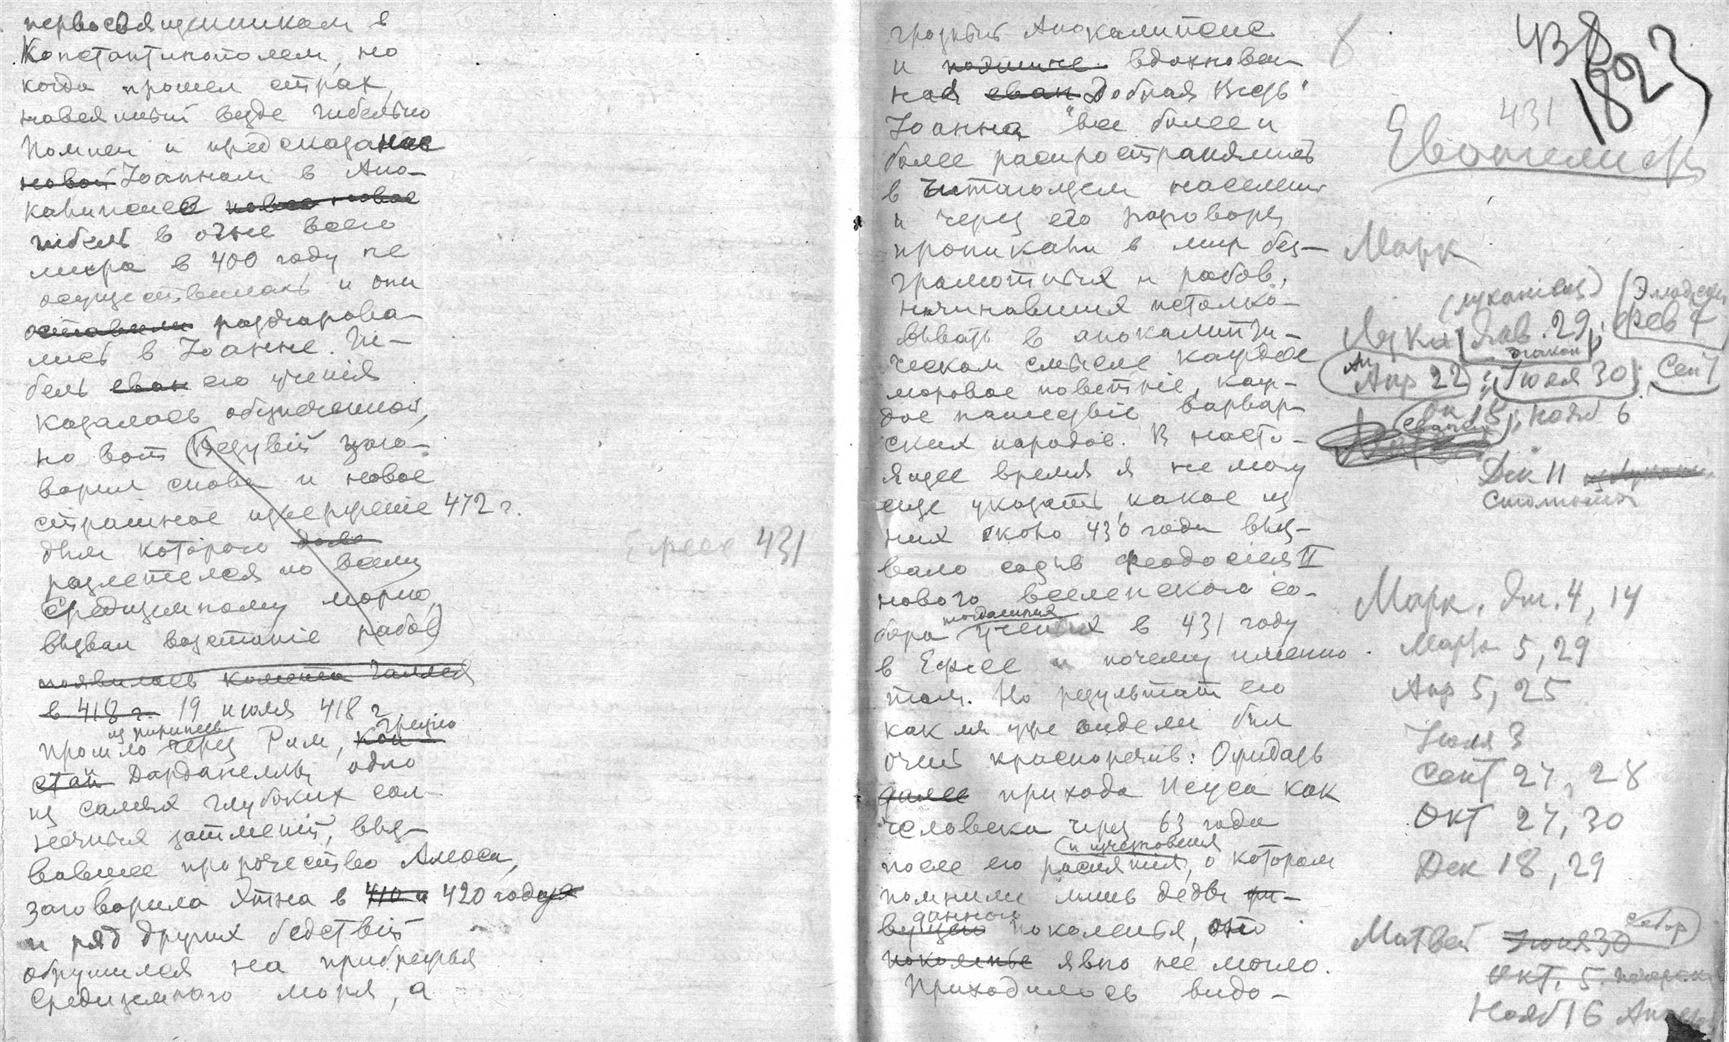 первосвященником в
Константинополем, но
когда прошел страх,
навеянный везде гибелью
Помпеи и предсказанное
новой Иоанном в Апо-
калипсисе новое новое
гибель в огне всего
мира в 400 году не
осуществилась и они
оставили разочарова-
лись в Иоанне. Ги-
бель еван его учения
казалась обеспеченной,
но вот (Везувий заго-
ворил снова и новое
страшное извержение 472 г.
дым которого
разлетелся по всему
Средиземному морю,
вызвал возстание рабов)
появилась комета Галлея
в 418 г. 19 июля 418 г
из Пиринеев грозно
прошло через Рим, кон
стан Дарданеллы, одно
из самых глубоких сол-
нечных затмений, выз-
вавшее пророчество Амоса,
заговорила Этна в 410 и 420 году
и ряд других бедствий
обрушился на прибрежья
Средиземного моря, а
Ефес 431
грозный Апокалипсис
и вдохновен-
ная еван Добрая Весть"
Иоанна "все более и
более распространялись
в читающем населении
и через его разговоры
проникали в мир без-
грамотных и рабов,
начинавших истолко-
вывать в апокалипти-
ческом смысле каждое
моровое поветрие, каж-
дое нашедствие варвар-
ских народов. В насто-
ящее время я не могу
еще указать какое из
них около 430 года выз-
вало созыв Феодосием II
нового вселенского со-
тогдашних
бора ученых в 431 году
в Ефесе и почему именно
там. Но результат его
как мы уже видели был
очень красноречив: Ожидать
далее прихода Исуса как
человека через 63 года
и исчезновения
после его распятия, о котором
помнили лишь деды жи-
данном
вущего поколенья, оно
поколенье явно не могло.
Приходилось видо-
8
ЧЗ 8
1823
431
Евангелист
Марк
Лука Янв. 29, Фев 7
Апр 22; Июля 30; Сент
Окт 18; Нояб 6
Дек 11
Марк. Янв. 4, 14
Март 5, 29
Апр 5, 25
Июля 3
Сент 27, 28
Окт 27, 30
Дек 18, 29
собор
Матвей Июня 30
Окт. 5.
Нояб 16